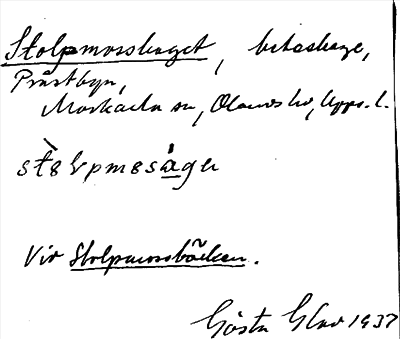 Stolpmosshaget, beteshage,
Prästbyn,
Morkarla sn, Olands hd, Upps. l.
Vid Stolpmossbäcken.
Gösta Glad 1937